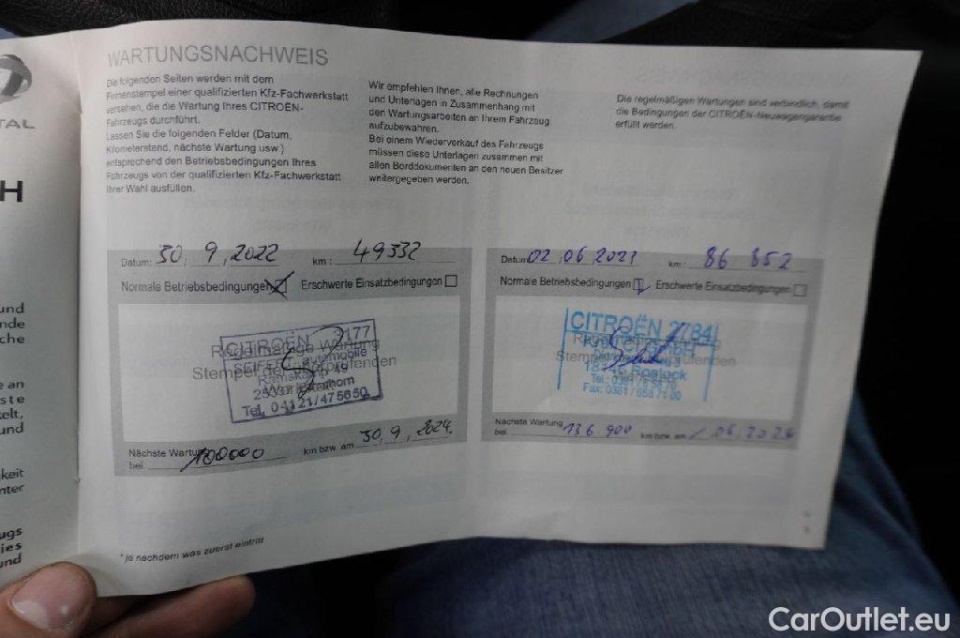 TAL
H
und
nde
che
e an
ste
kelt,
und
keit
nter
ugs
ies
und
WARTUNGSNACHWEIS
Die folgenden Seiten werden mit dem
Firmenstempel einer qualifizierten Kfz-Fachwerkstatt
versehen, die die Wartung Ihres CITROËN-
Fahrzeugs durchführt.
Lassen Sie die folgenden Felder (Datum,
Kilometerstand, nächste Wartung usw.)
entsprechend den Betriebsbedingungen Ihres
Fahrzeugs von der qualifizierten Kfz-Fachwerkstatt
Ihrer Wahl ausfüllen.
Wir empfehlen Ihnen, alle Rechnungen
und Unterlagen in Zusammenhang mit
den Wartungsarbeiten an Ihrem Fahrzeug
aufzubewahren.
Bei einem Wiederverkauf des Fahrzeugs
müssen diese Unterlagen zusammen mit
allen Borddokumenten an den neuen Besitzer
weitergegeben werden.
Die regelmäßigen Wartungen sind verbindlich, damit
die Bedingungen der CITROËN-Neuwagengarantie
erfüllt werden.
Datum: 30.9.2022 km: 49332
Normale Betriebsbedingungen Erschwerte Einsatzbedingungen
CITROËN 2177
Regelmäßige Wartung
automobile
Stempel des Ausführenden
Ramskamp 49
Tel. 04121/475650
Nächste Wartung
bei 100000 km bzw. am 30.9.2024
* je nachdem was zuerst eintritt
Datum: 02.06.2023 km: 86 852
Normale Betriebsbedingungen Erschwerte Einsatzbedingungen
CITROËN 2784
Rostock
Nächste Wartung
bei 136 900 km bzw. am / 06.2025
CarOutlet.eu